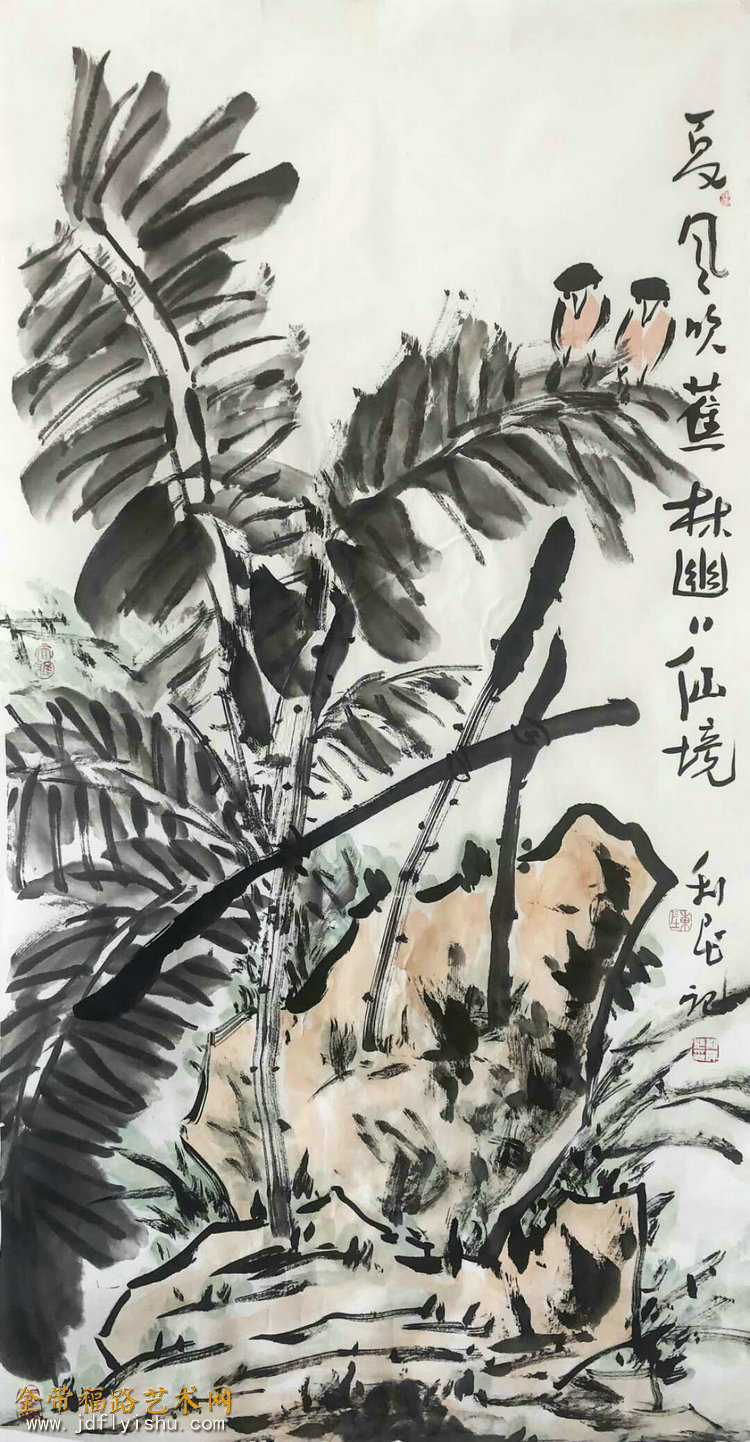 夏风吹蕉林幽〻仙境
利民记
金带福路艺术网
www.jdflyishu.com